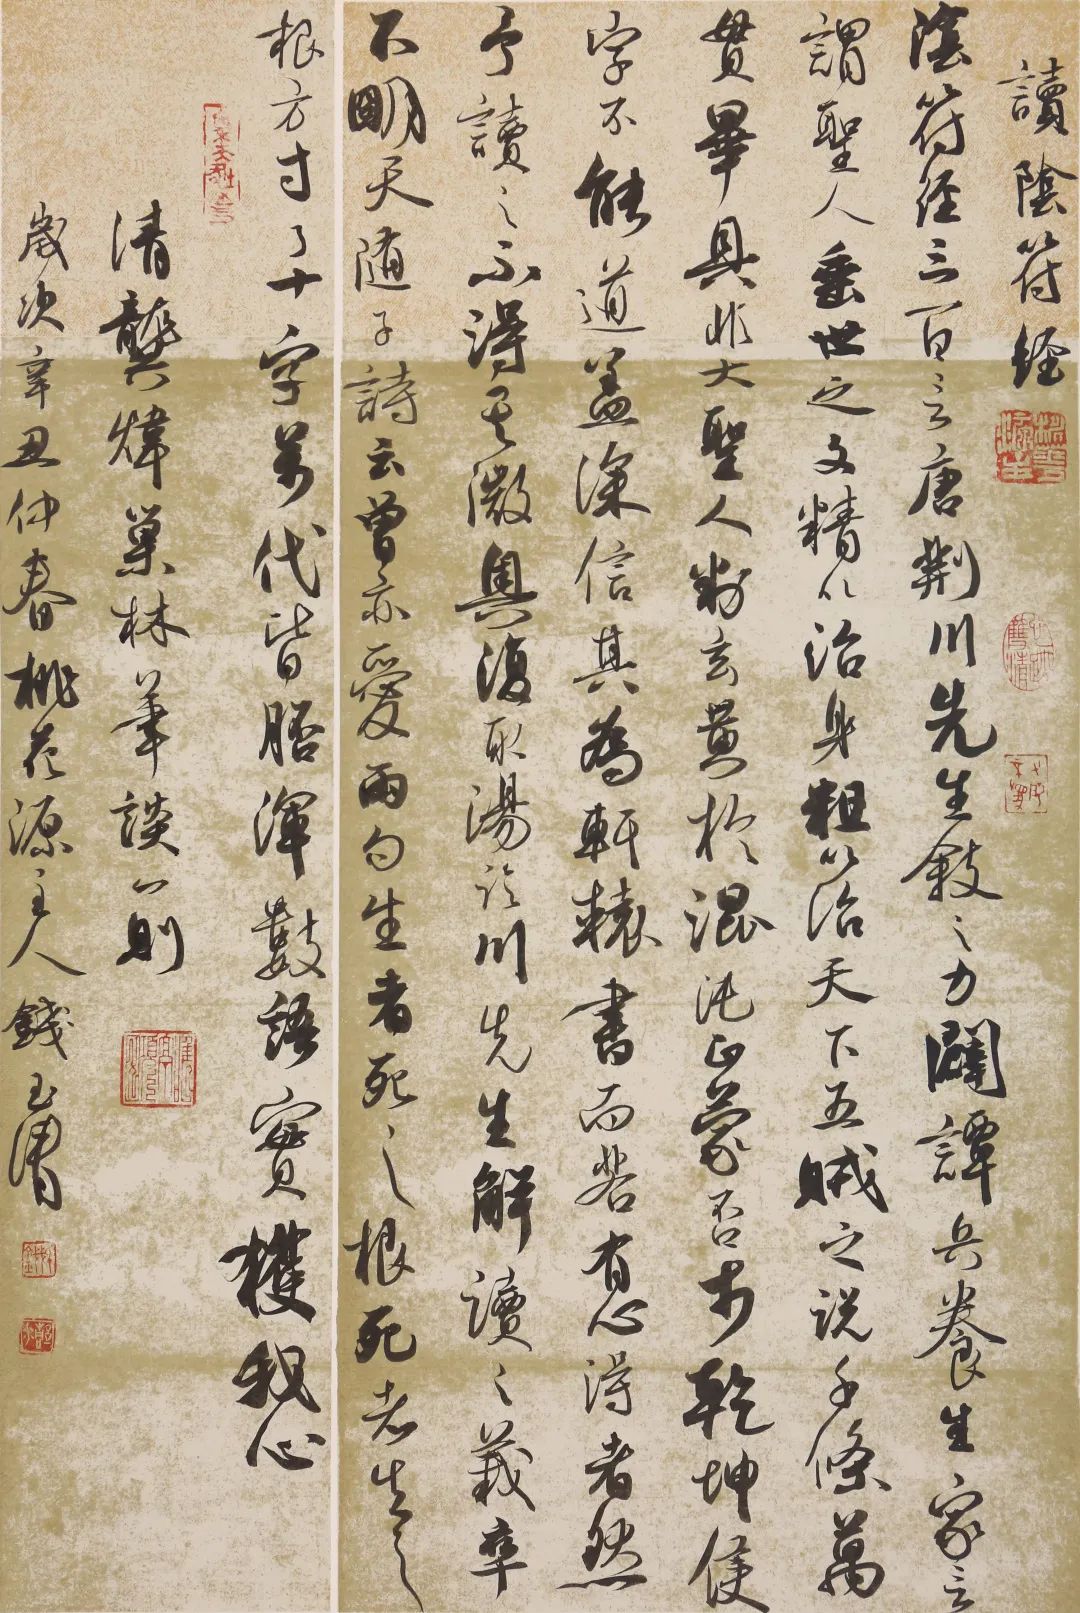 讀陰符経
陰符经三百言唐荆川先生敍之力闢譚兵養生家言
謂聖人垂世之文精以治身粗以治天下五賊之説千條萬
貫畢具非大聖人玄黄於混沌正蒙否乾坤隻
字不能道盖深信其為軒轅書而若有心得者然
予讀之不得其微奥復取湯臨川先生解讀之義卒
不明天随子詩云曾亦愛兩句生者死之根死者生之
根方寸了十字萬代皆胚渾數語實獲我心
清龔煒巢林筆談一則
歲次辛丑仲春桃花源主人錢玉